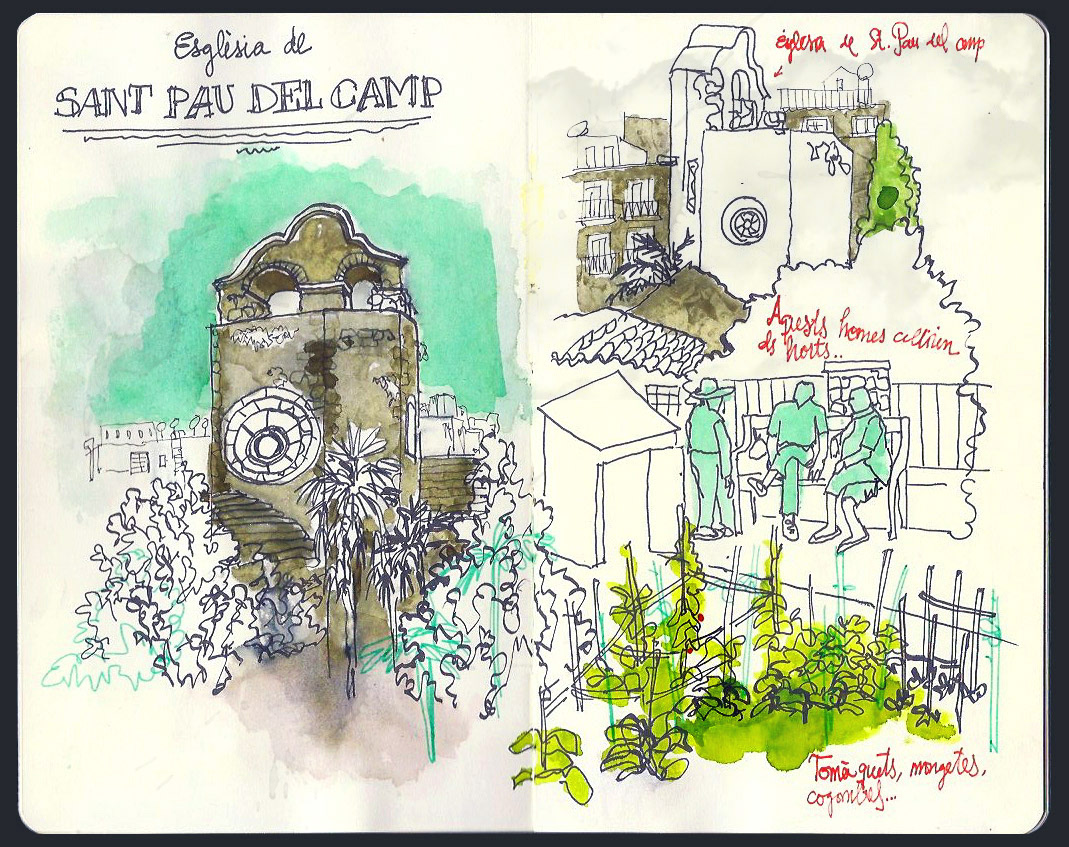 Esglèsia de
SANT PAU DEL CAMP
església de St. Pau del camp
Aquests homes cultiven
els horts..
Tomàquets, mongetes,
cogombres...